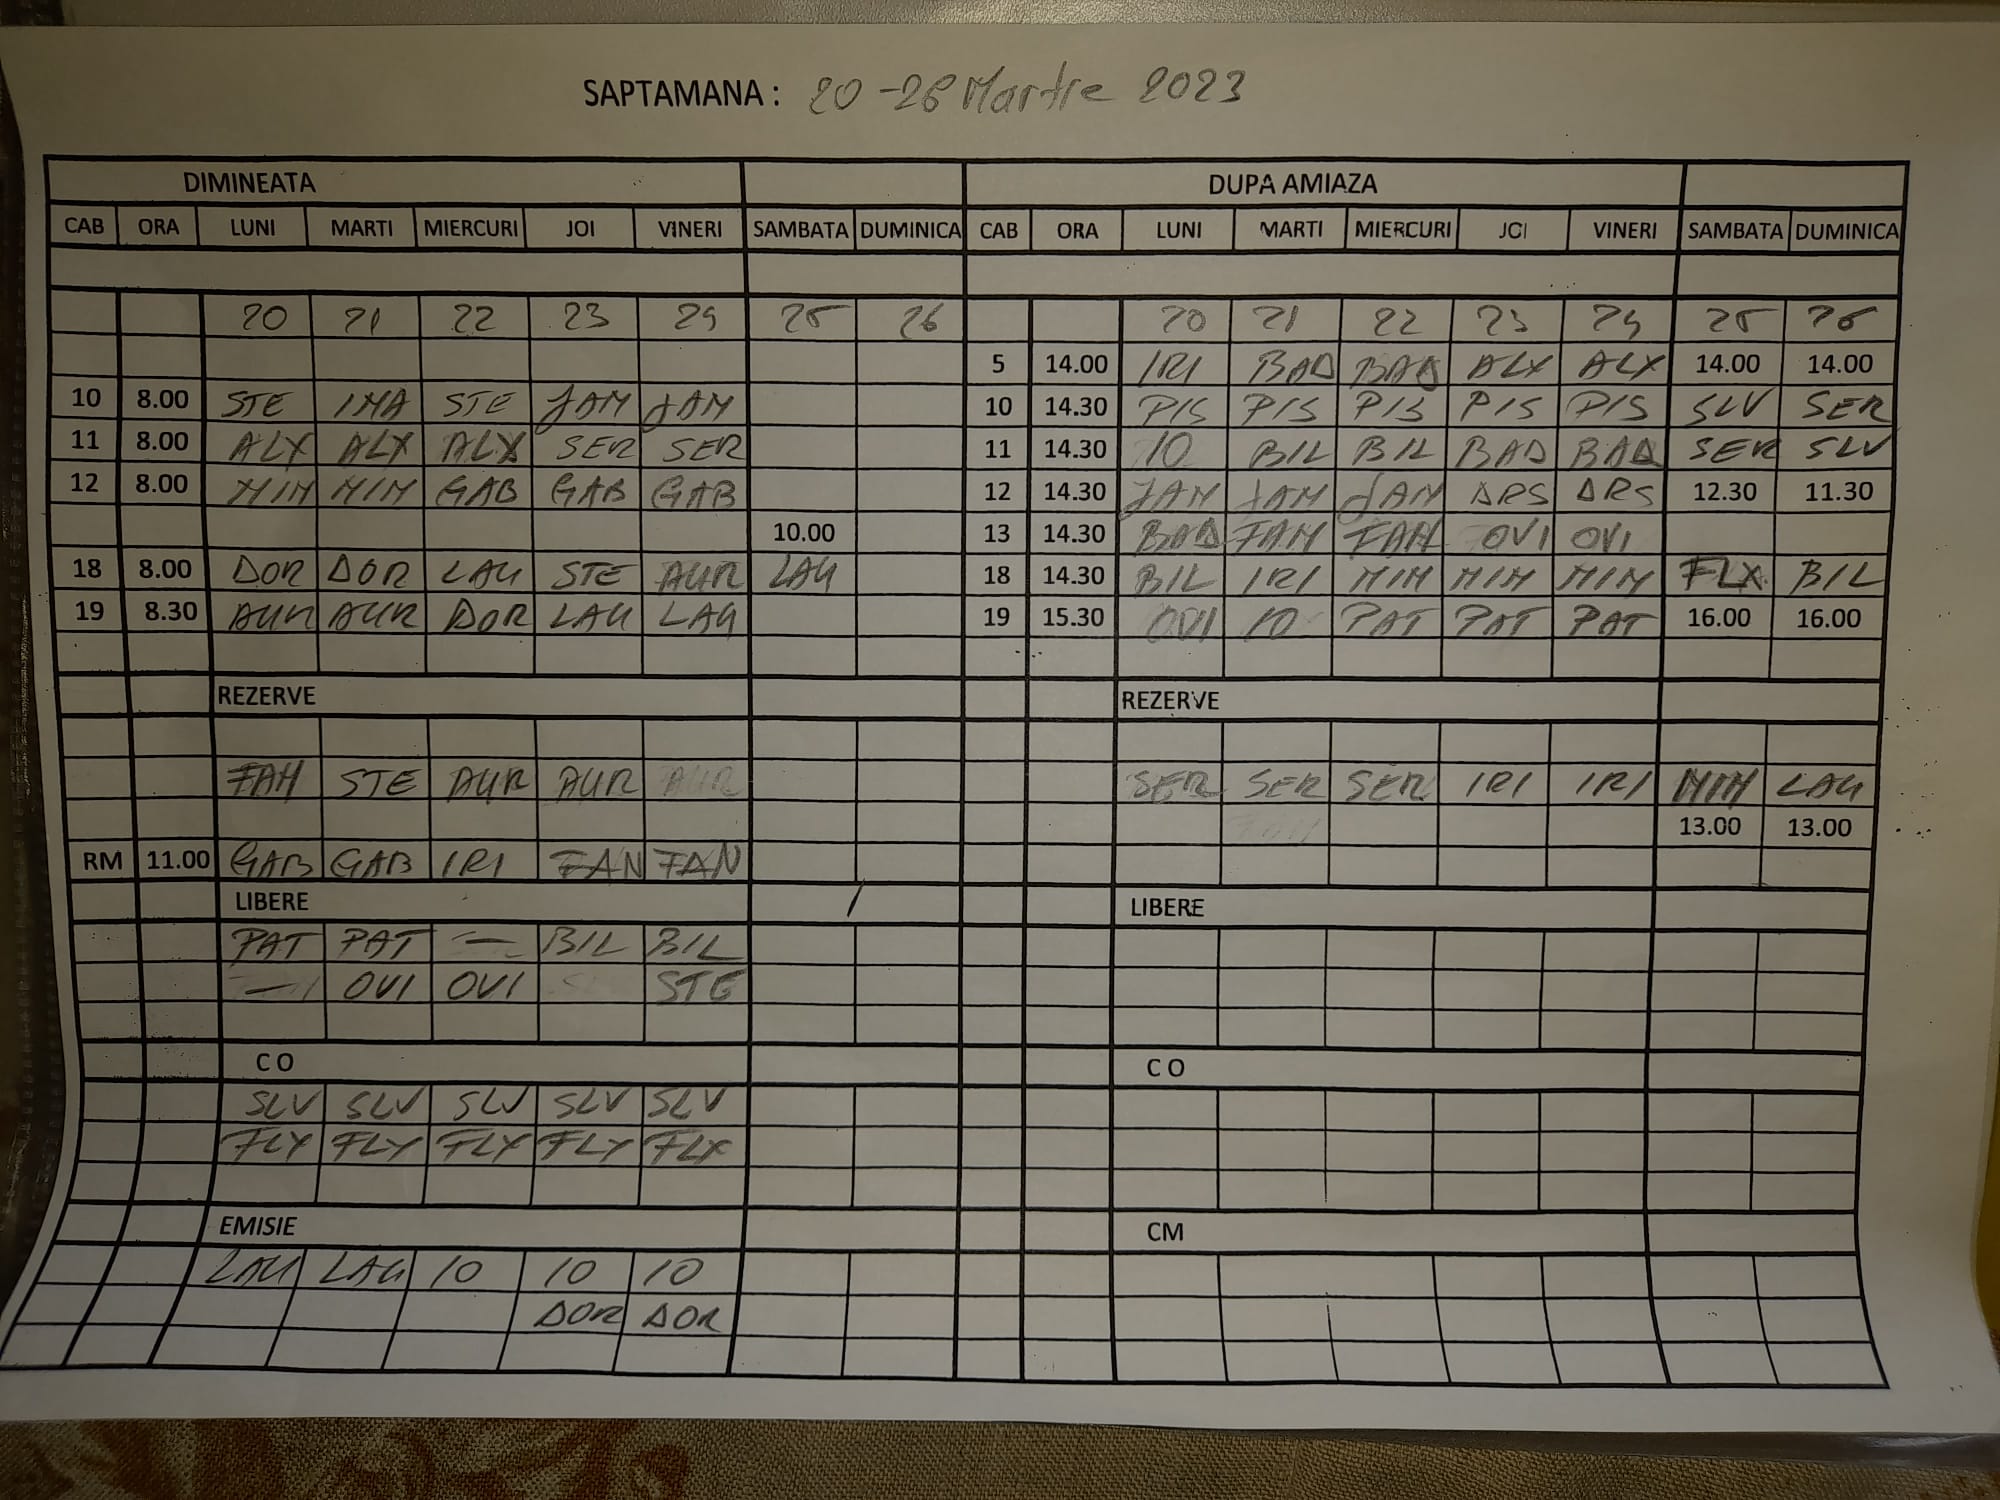 SAPTAMANA : 20-26 Martie 2023
DIMINEATA DUPA AMIAZA
CAB ORA LUNI MARTI MIERCURI JOI VINERI SAMBATA DUMINICA CAB ORA LUNI MARTI MIERCURI JOI VINERI SAMBATA DUMINICA
20 21 22 23 24 25 26 20 21 22 23 24 25 26
5 14.00 IRI BAD BAD ALX ALX 14.00 14.00
10 8.00 STE IMA STE JAM JAM 10 14.30 PIS PIS PIS PIS PIS SLV SER
11 8.00 ALX ALX ALX SER SER 11 14.30 10 BIL BIL BAD BAD SER SLV
12 8.00 MIM MIM GAB GAB GAB 12 14.30 JAM JAM JAM DRS DRS 12.30 11.30
10.00 13 14.30 BAD FAM FAM OVI OVI
18 8.00 DOR DOR LAU STE AUR LAU 18 14.30 BIL IRI MIM MIM MIM FLX BIL
19 8.30 AUR AUR DOR LAU LAU 19 15.30 OVI 10 PAT PAT PAT 16.00 16.00
REZERVE REZERVE
STE AUR AUR AUR SER SER SER IRI IRI MIM LAU
13.00 13.00
RM 11.00 GAB GAB IRI FAN FAN
LIBERE / LIBERE
PAT PAT — BIL BIL
— OVI OVI STE
CO CO
SLV SLV SLV SLV SLV
FLX FLX FLX FLX FLX
EMISIE CM
LAU LAU 10 10 10
DOR DOR